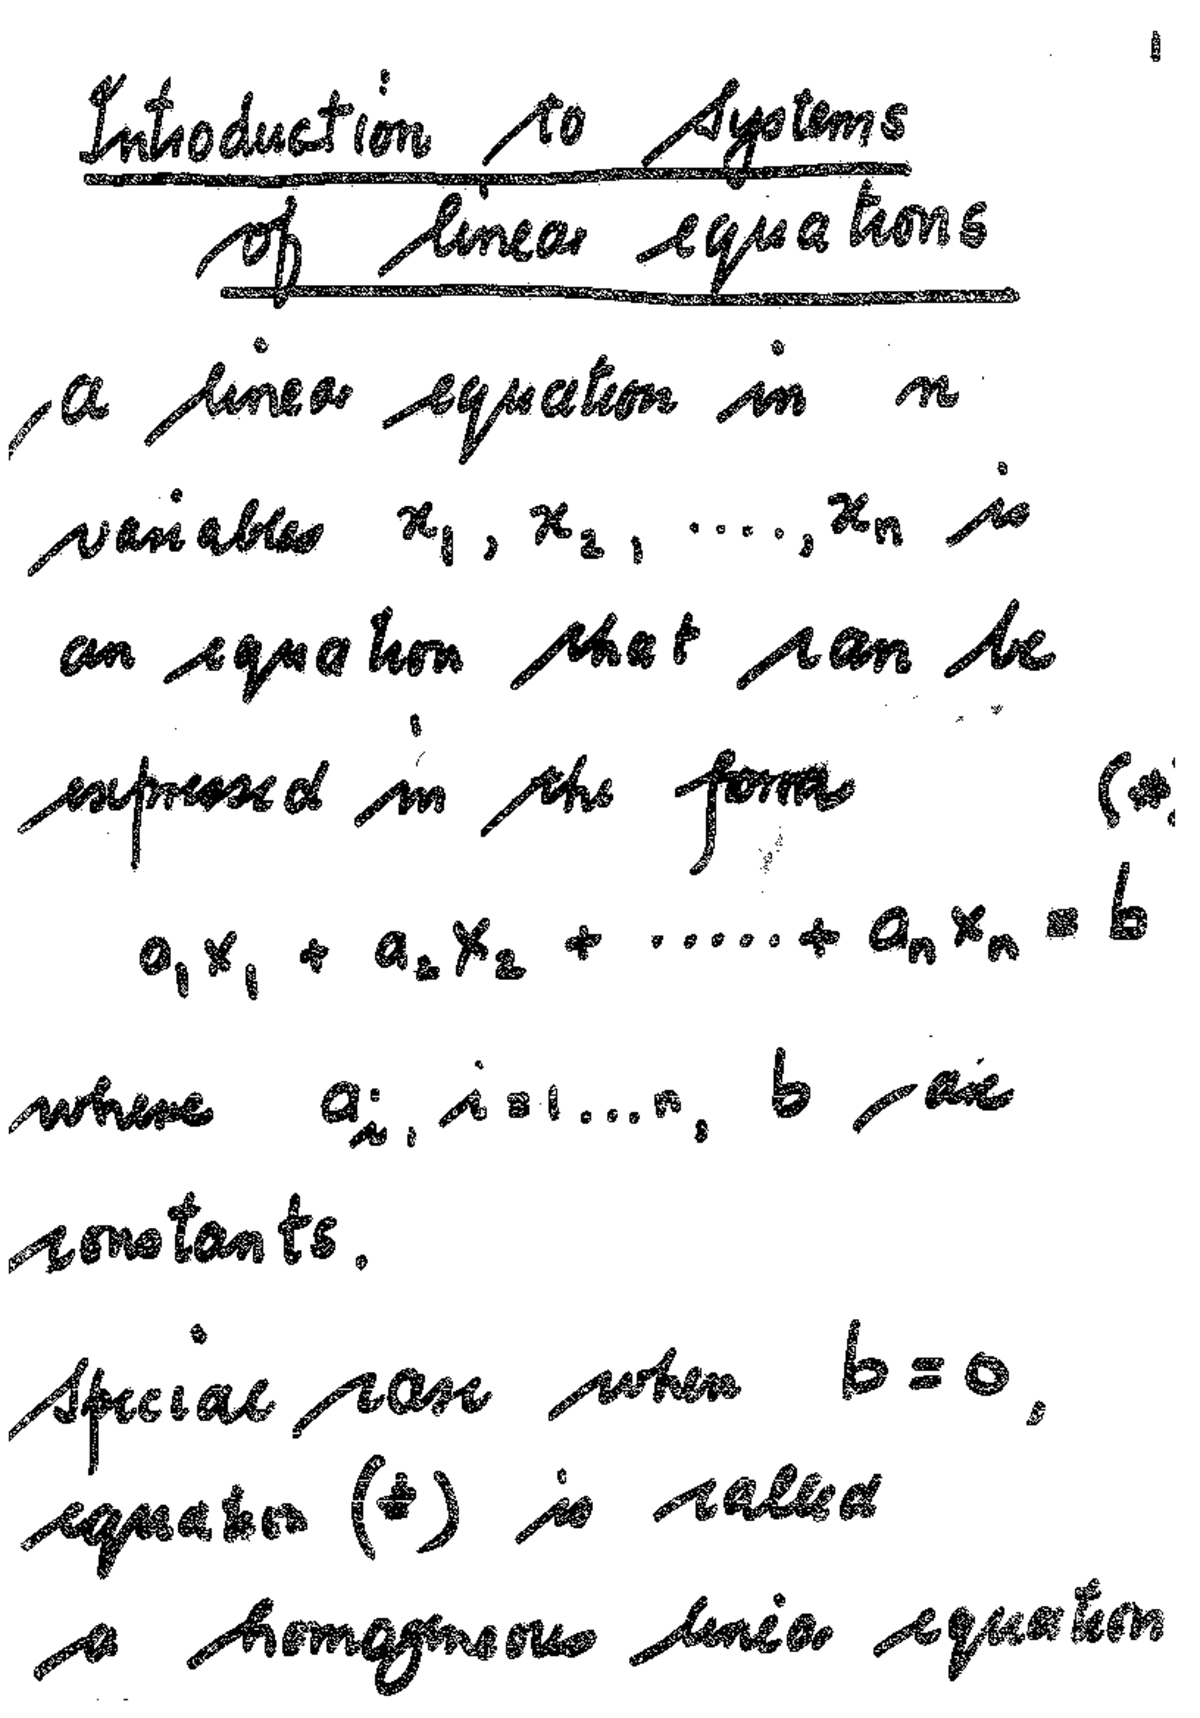 1
Introduction to systems
of linear equations
a linear equation in n
variables x₁, x₂, ...., xₙ is
an equation that can be
expressed in the form (*)
a₁x₁ + a₂x₂ + ..... + aₙxₙ = b
where aᵢ, i=1...n, b are
constants.
special case when b=0,
equation (*) is called
a homogeneous linear equation